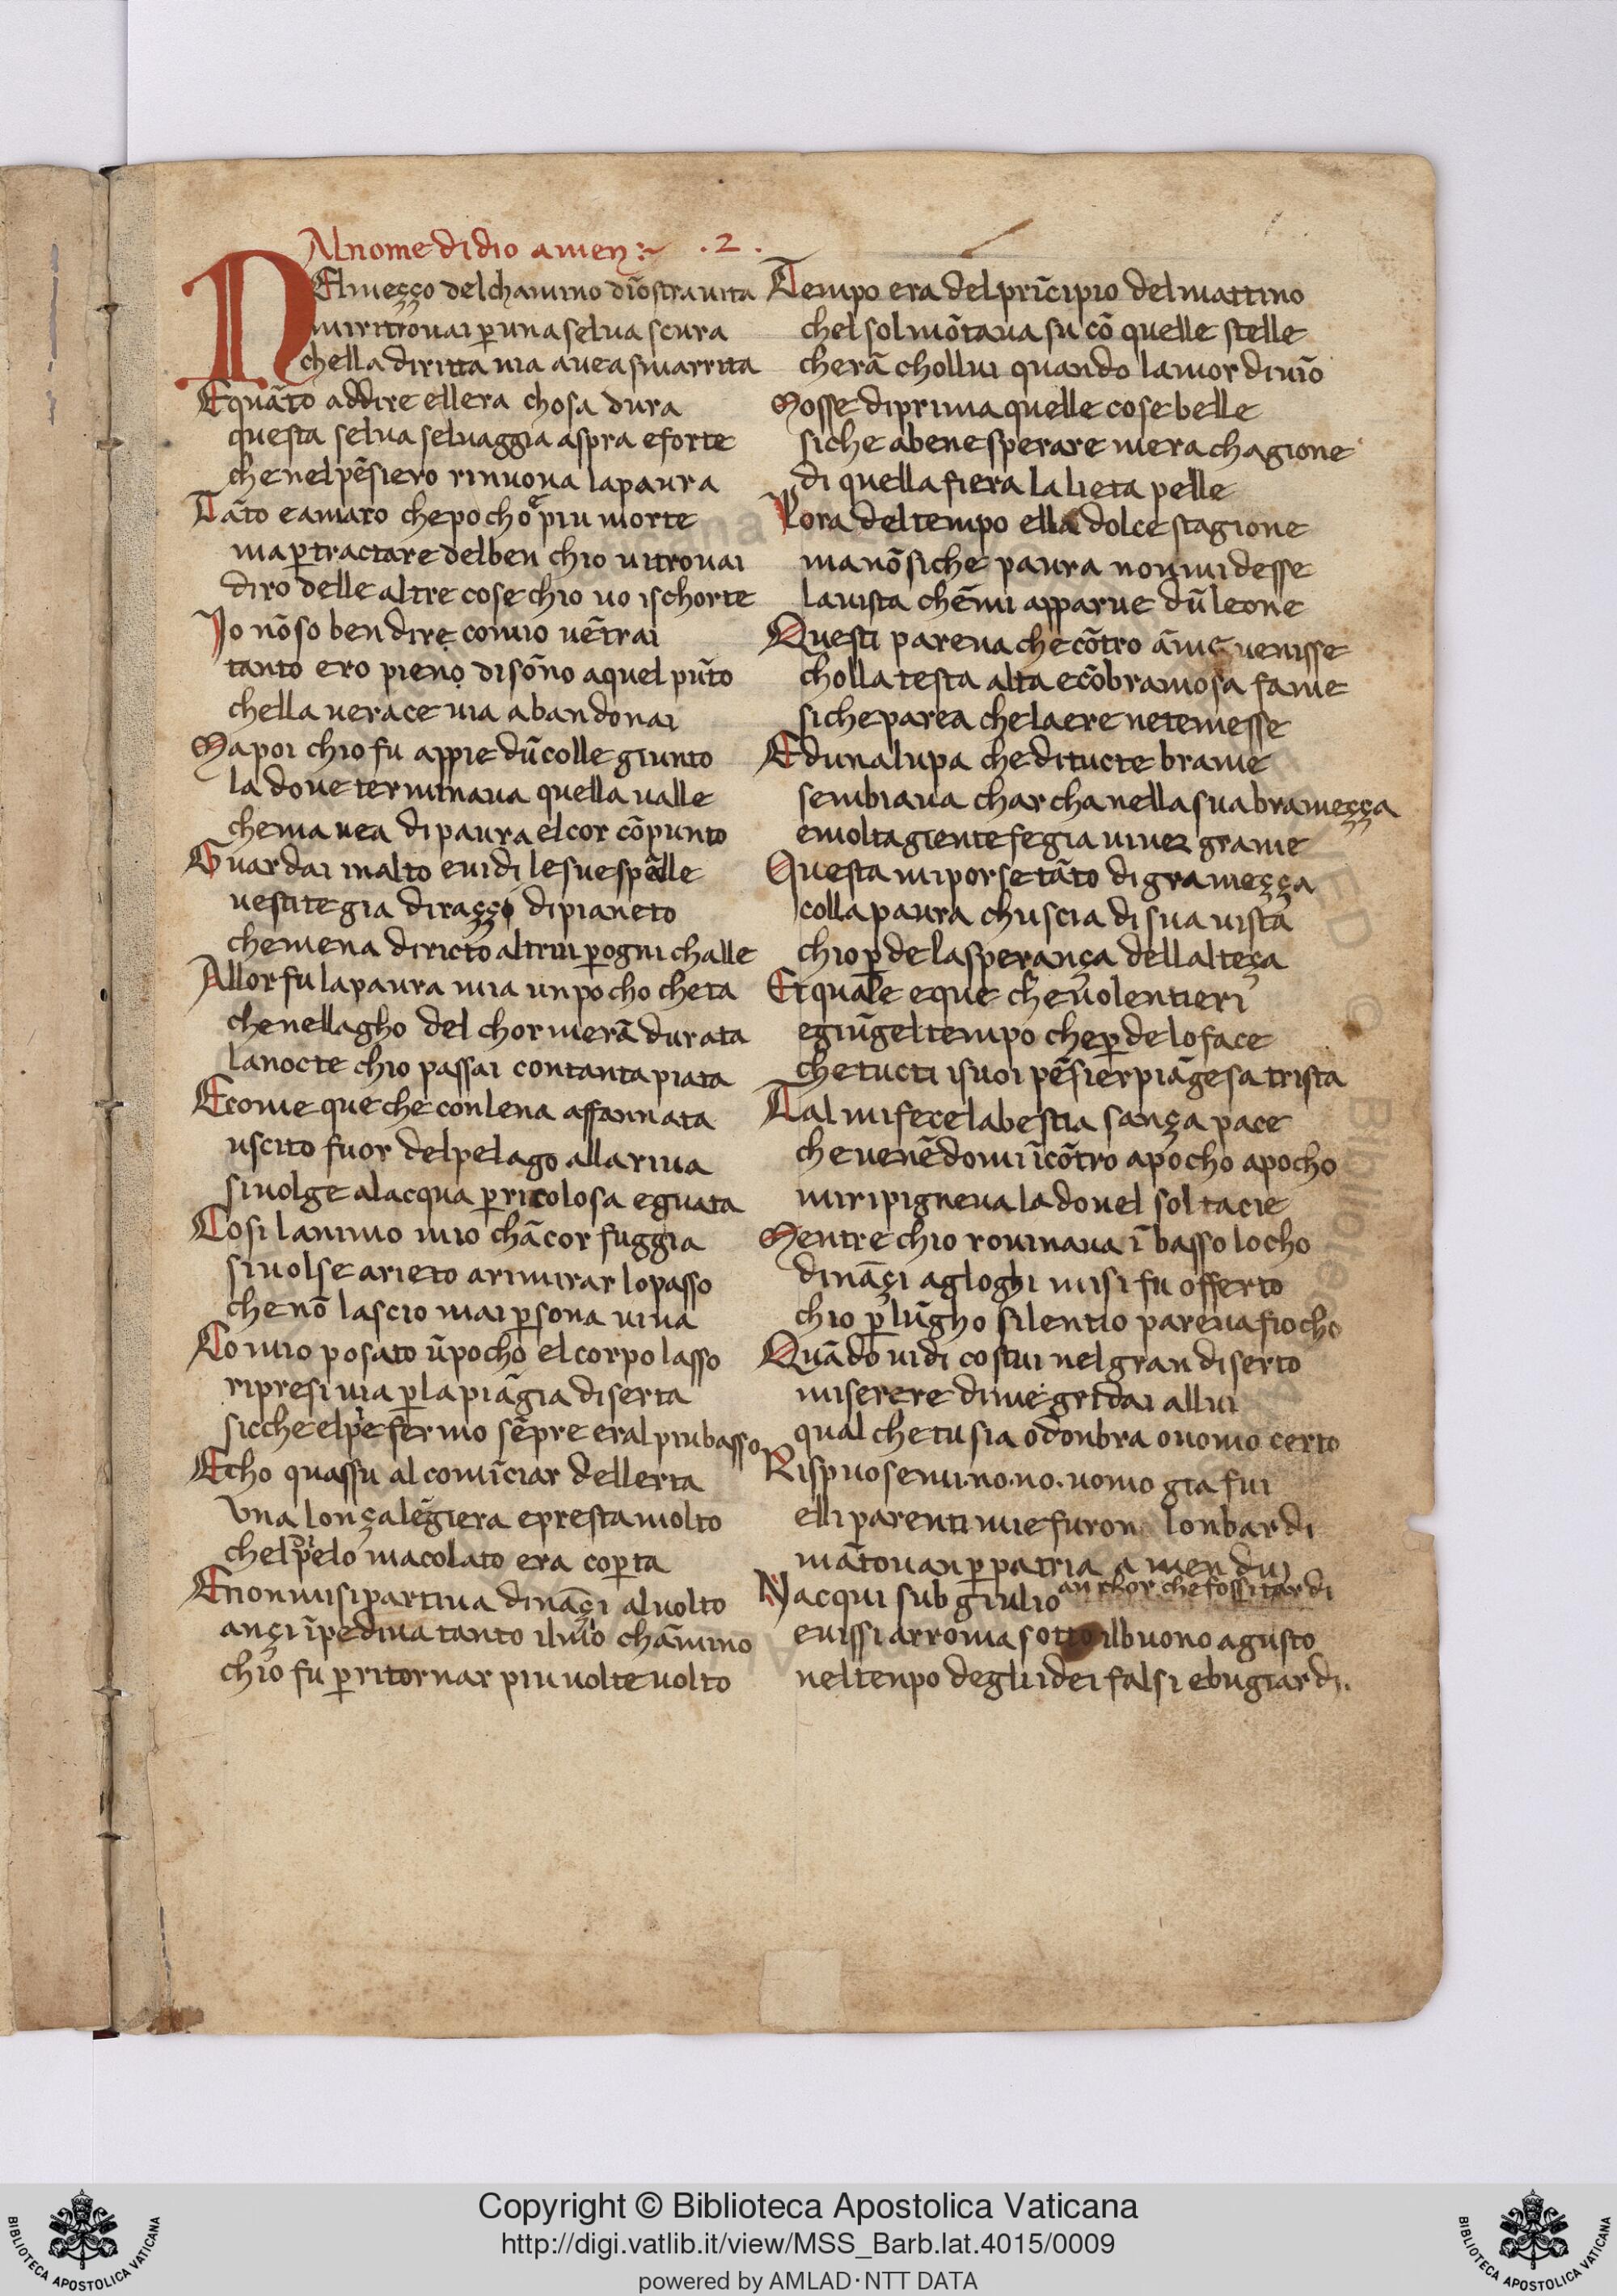 Al nome di dio amen :~ . 2 .
NEl meçço del chamino dīostra uita
mi ritrouai ꝑ una selua scura
chella diritta uia auea smarrita
E quāto addire ellera chosa dura
questa selua seluaggia aspra e forte
che nel pēsiero rinuoua la paura
Tāto e amaro che pocho e piu morte
ma ꝑ tractare del ben chio ui trouai
diro delle altre cose chio uo ischorte
Io nō so ben dire comio uētrai
tanto ero pieno di sōno a quel pūto
chella uerace uia abandonai
Ma poi chio fu appie dū colle giunto
la doue terminaua quella ualle
che mauea di paura el cor cōpunto
Guardai in alto e uidi le sue spalle
uestite gia di raççi di pianeto
che mena diricto altrui ꝑ ogni challe
Allor fu la paura mia un pocho cheta
che nel lagho del chor merā durata
la nocte chio passai con tanta piata
E come que che con lena affannata
uscito fuor del pelago alla riua
si uolge al acqua ꝑicolosa e guata
Cosi lanimo mio chācor fuggia
si uolse arieto a rimirar lo passo
che nō lascio mai ꝑsona uiua
Comio posato ū pocho el corpo lasso
ripresi uia ꝑ la piāgia diserta
sicche el pie fermo sēpre eral piu basso
Echo quassu al comīciar dellerta
Una lonça legiera e presta molto
che pelo macolato era coꝑta
E non misi partiua dināçi al uolto
ançi īpediua tanto il mio chāmino
chio fu ꝑ ritornar piu uolte uolto
Tempo era del prīcipio del mattino
chel sol mōtaua su cō quelle stelle
cherā chollui quando lamor diuīo
Mosse di prima quelle cose belle
siche a bene sperare mera chagione
di quella fiera la lieta pelle
Lora del tempo ella dolce stagione
ma nō siche paura non mi desse
la uista chēmi apparue dū leone
Questi pareua che cōtro āme uenisse
cholla testa alta e cō bramosa fame
siche parea che laere ne temesse
Ed una lupa che di tucte brame
sembiaua charcha nella sua brameçça
e molta giente fe gia uiuer grame
Questa mi porse tāto di grameçça
colla paura chuscia di sua uista
chio ꝑde la sperança dell alteça
Et quale e que che uolentieri
e giūgel tempo che ꝑde lo face
che tucti i suoi pēsier piāge sa trista
Tal mi fece la bestia sança pace
che uenēdomi īcōtro apocho apocho
mi ripigneua la douel sol tacie
Mentre chio rouinaua ī basso locho
dināçi agloghi misi fu offerto
chio ꝑ lūgho silentio pareua fiocho
Quādo uidi costui nel gran diserto
miserere di me gridai allui
qual che tu sia od onbra o uomo certo
Rispuosemi.no.no.uomo gia fui
elli parenti mie furon lonbardi
mātouan ꝑ patria amendui
Nacqui sub giulio anchor che fossi tardi
e uissi arroma sotto il buono agusto
nel tenpo degli idei falsi e bugiardi.
Copyright © Biblioteca Apostolica Vaticana
http://digi.vatlib.it/view/MSS_Barb.lat.4015/0009
powered by AMLAD·NTT DATA
BIBLIOTECA APOSTOLICA VATICANA
BIBLIOTECA APOSTOLICA VATICANA